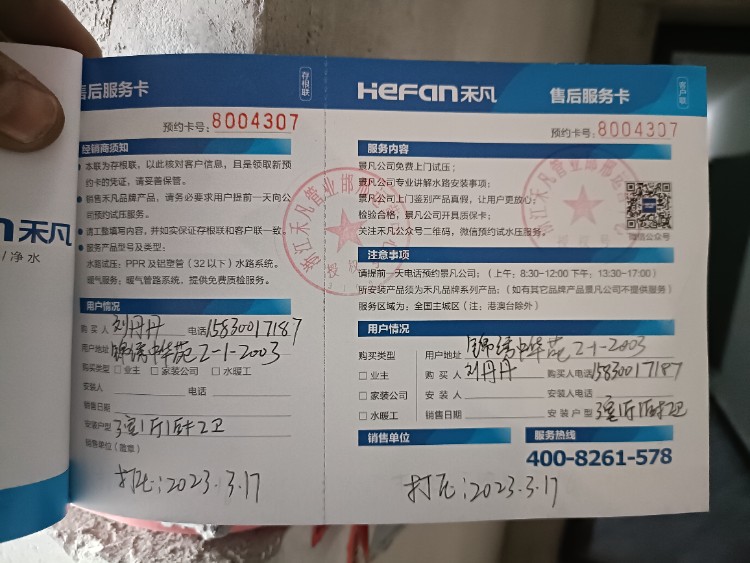 售后服务卡
存根联
预约卡号: 8004307
经销商须知
本联为存根联，以此核对客户信息，且是领取新预
约卡的凭证，请妥善保管。
销售禾凡品牌产品，请务必要求用户提前一天向公
司预约试压服务。
请工整填写内容，并如实保证存根联和客户联一致。
服务产品型号及类型:
水路试压: PPR 及铝塑管（32 以下）水路系统。
暖气服务: 暖气管路系统，提供免费质检服务。
用户情况
购买人 刘丹丹 电话 15830017187
用户地址 锦绣中华苑2-1-2003
购买类型 □ 业主 □ 家装公司 □ 水暖工
安装人 电话
销售日期
安装户型 3室1厅1厨2卫
销售单位（盖章）
打压: 2023.3.17
禾凡
/ 净水
HeFan禾凡
售后服务卡
客户联
预约卡号: 8004307
服务内容
景凡公司免费上门试压;
景凡公司专业讲解水路安装事项;
景凡公司上门鉴别产品真假，让用户更放心;
检验合格，景凡公司开具质保卡;
关注禾凡公众号二维码，微信预约试水压服务。
微信公众号
注意事项
请提前一天电话预约景凡公司;（上午: 8:30-12:00 下午: 13:30-17:00）
所安装产品须为禾凡品牌系列产品;（如有其它品牌产品景凡公司不提供服务）
服务区域为: 全国主城区（注: 港澳台除外）
用户情况
购买类型 用户地址 锦绣中华苑2-1-2003
□ 业主 购买人 刘丹丹 购买人电话 15830017187
□ 家装公司 安装人 安装人电话
□ 水暖工 销售日期 安装户型 3室1厅1厨2卫
销售单位
服务热线
400-8261-578
打压: 2023.3.17